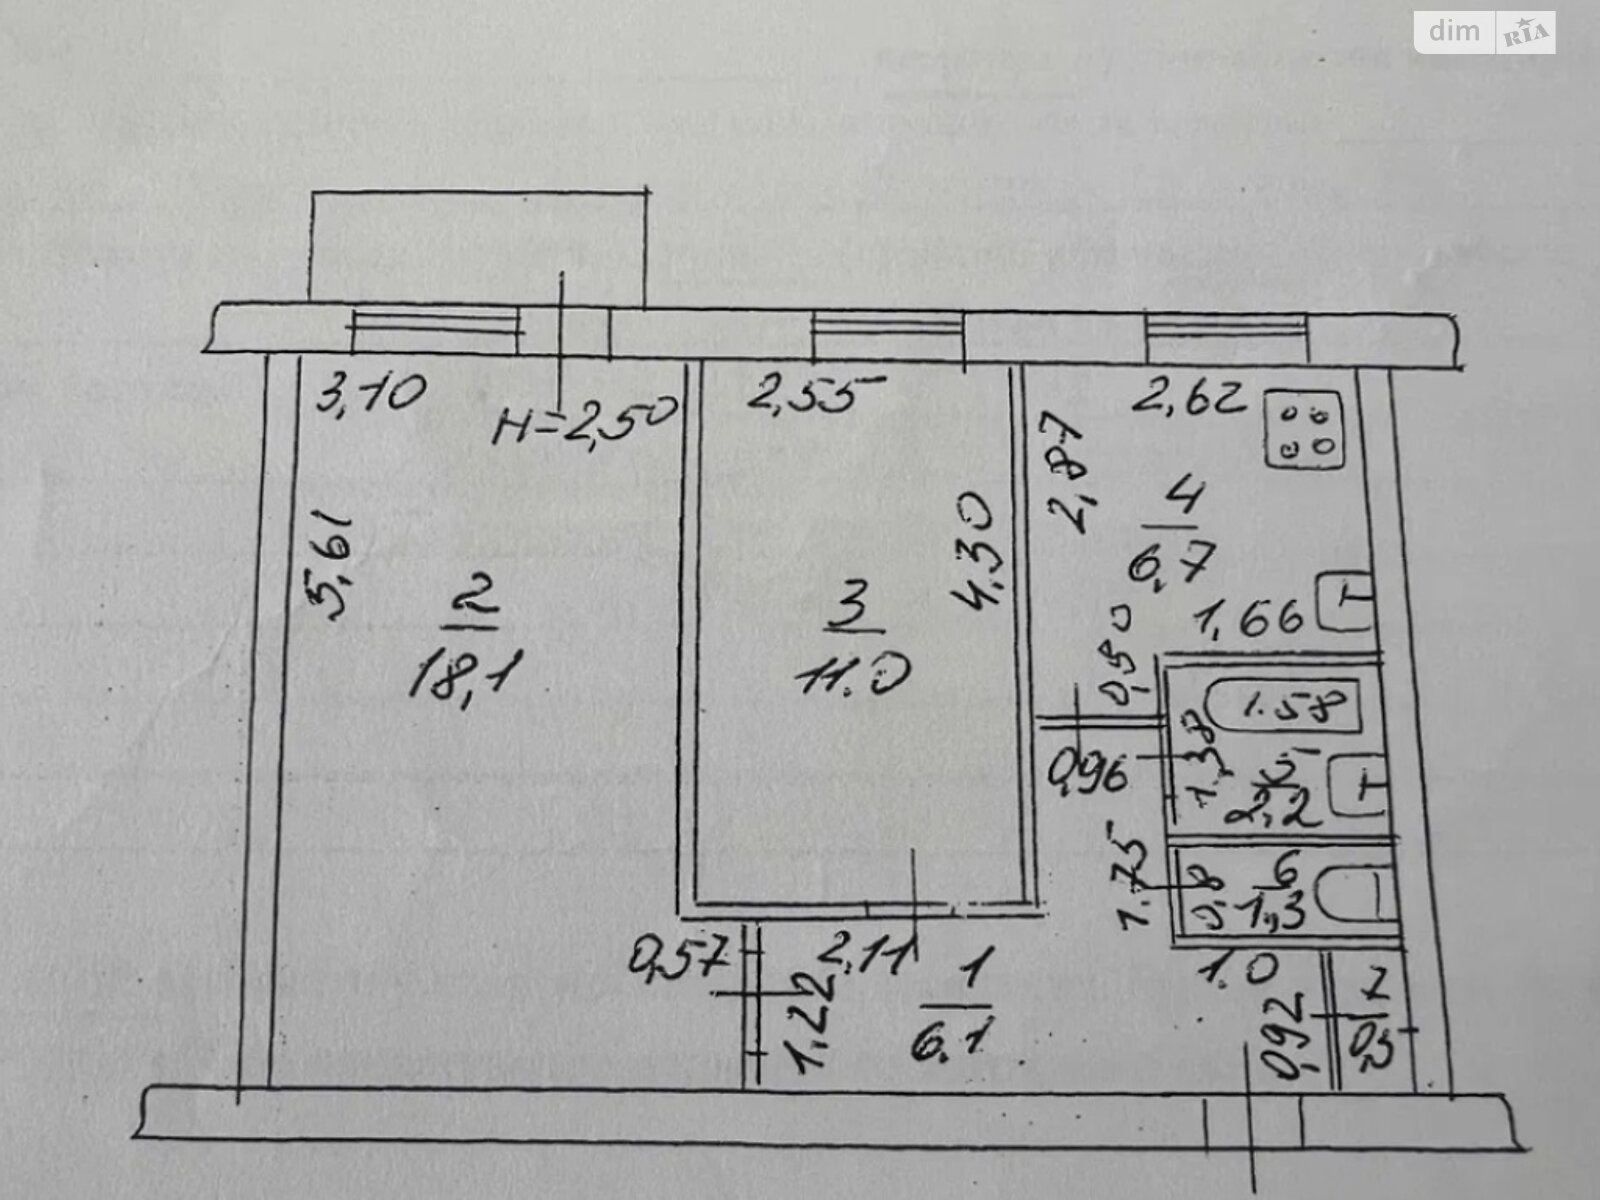 dim RIA
3,10
H=2,50
2,55
2,62
5,61
2
18,1
3
11.0
4,30
2,87
4
6,7
1,66
0,50
0,96
1.58
1,38
5
2,2
1.75
6
1,3
0,8
0,57
2,11
1,22
1
6.1
1.0
0,92
7
0,5